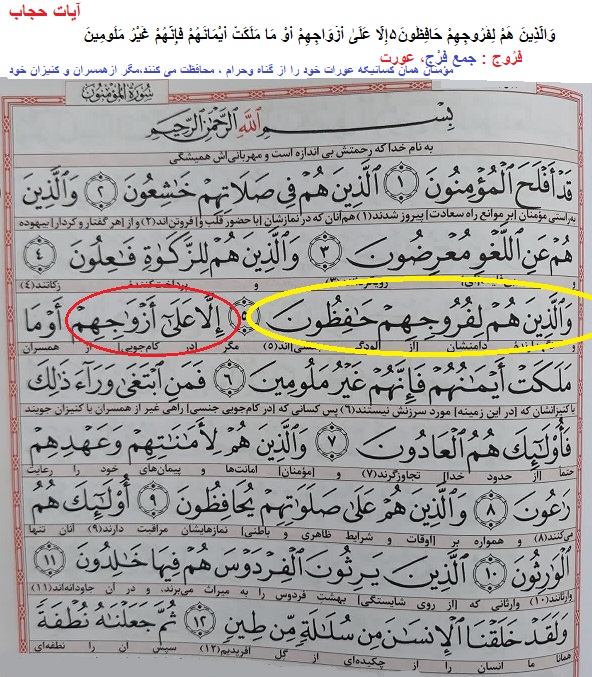 آیات حجاب
وَالَّذِينَ هُمْ لِفُرُوجِهِمْ حَافِظُونَ۵إِلَّا عَلَىٰ أَزْوَاجِهِمْ أَوْ مَا مَلَكَتْ أَيْمَانُهُمْ فَإِنَّهُمْ غَيْرُ مَلُومِينَ
فرُوج : جمع فرْج، عورت
مؤمنان همان کسانیکه عورات خود را از گناه وحرام ، محافظت می کنند،مگر ازهمسران و کنیزان خود
سُورَةُ الْمُؤْمِنُونَ
بِسْمِ اللَّهِ الرَّحْمٰنِ الرَّحِيمِ
به نام خدا که رحمتش بی اندازه است و مهربانی‌اش همیشگی
قَدْ أَفْلَحَ الْمُؤْمِنُونَ ١ الَّذِينَ هُمْ فِي صَلَاتِهِمْ خَاشِعُونَ ٢ وَالَّذِينَ
به‌راستی مؤمنان [بر موانع راه سعادت] پیروز شدند(۱) هم‌آنان که در نمازشان [با حضور قلب و] فروتن‌اند(۲) و از [هر گفتار و کردار] بیهوده
هُمْ عَنِ اللَّغْوِ مُعْرِضُونَ ٣ وَالَّذِينَ هُمْ لِلزَّكَوٰةِ فَاعِلُونَ ٤
و پرداخت‌کننده زکاتند(۴)
وَالَّذِينَ هُمْ لِفُرُوجِهِمْ حَافِظُونَ ٥ إِلَّا عَلَىٰ أَزْوَاجِهِمْ أَوْ مَا
دامنشان [از آلودگی‌ اند(۵) مگر [در کام‌جویی] از همسران
مَلَكَتْ أَيْمَانُهُمْ فَإِنَّهُمْ غَيْرُ مَلُومِينَ ٦ فَمَنِ ابْتَغَىٰ وَرَاءَ ذَٰلِكَ
یا کنیزانشان که [در این زمینه] مورد سرزنش نیستند(۶) پس کسانی که [در کام‌جویی جنسی] راهی غیر از همسران یا کنیزان جویند
فَأُولَٰئِكَ هُمُ الْعَادُونَ ٧ وَالَّذِينَ هُمْ لِأَمَانَاتِهِمْ وَعَهْدِهِمْ
حتماً [از حدود خدا] تجاوزگرند(۷) و [مؤمنان] امانت‌ها و پیمان‌های خود را رعایت
رَاعُونَ ٨ وَالَّذِينَ هُمْ عَلَىٰ صَلَوَاتِهِمْ يُحَافِظُونَ ٩ أُولَٰئِكَ هُمُ
می‌کنند(۸) و همواره بر [اوقات و شرایط ظاهری و باطنی] نمازهایشان مراقبت دارند(۹) آنان تنها
الْوَارِثُونَ ١٠ الَّذِينَ يَرِثُونَ الْفِرْدَوْسَ هُمْ فِيهَا خَالِدُونَ ١١
وارثانند(۱۰) وارثانی که [از روی شایستگی] بهشت فردوس را به میراث می‌برند، و در آن جاودانه‌اند(۱۱)
وَلَقَدْ خَلَقْنَا الْإِنسَانَ مِن سُلَالَةٍ مِّن طِينٍ ١٢ ثُمَّ جَعَلْنَاهُ نُطْفَةً
همانا ما انسان را از چکیده‌ای از گل آفریدیم(۱۲) سپس آن را نطفه‌ای